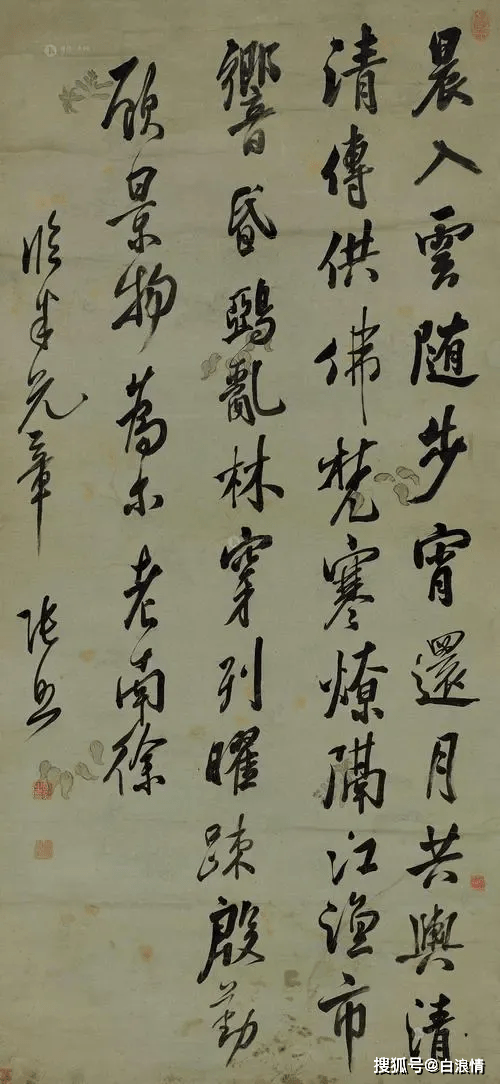 晨入雲随步宵還月共輿清
清傳供佛梵寒燎隔江漁市
響昏鵶亂林穿列曜疎殷勤
顧景物為尒老南徐
臨米元章 張照
搜狐号@白浪情